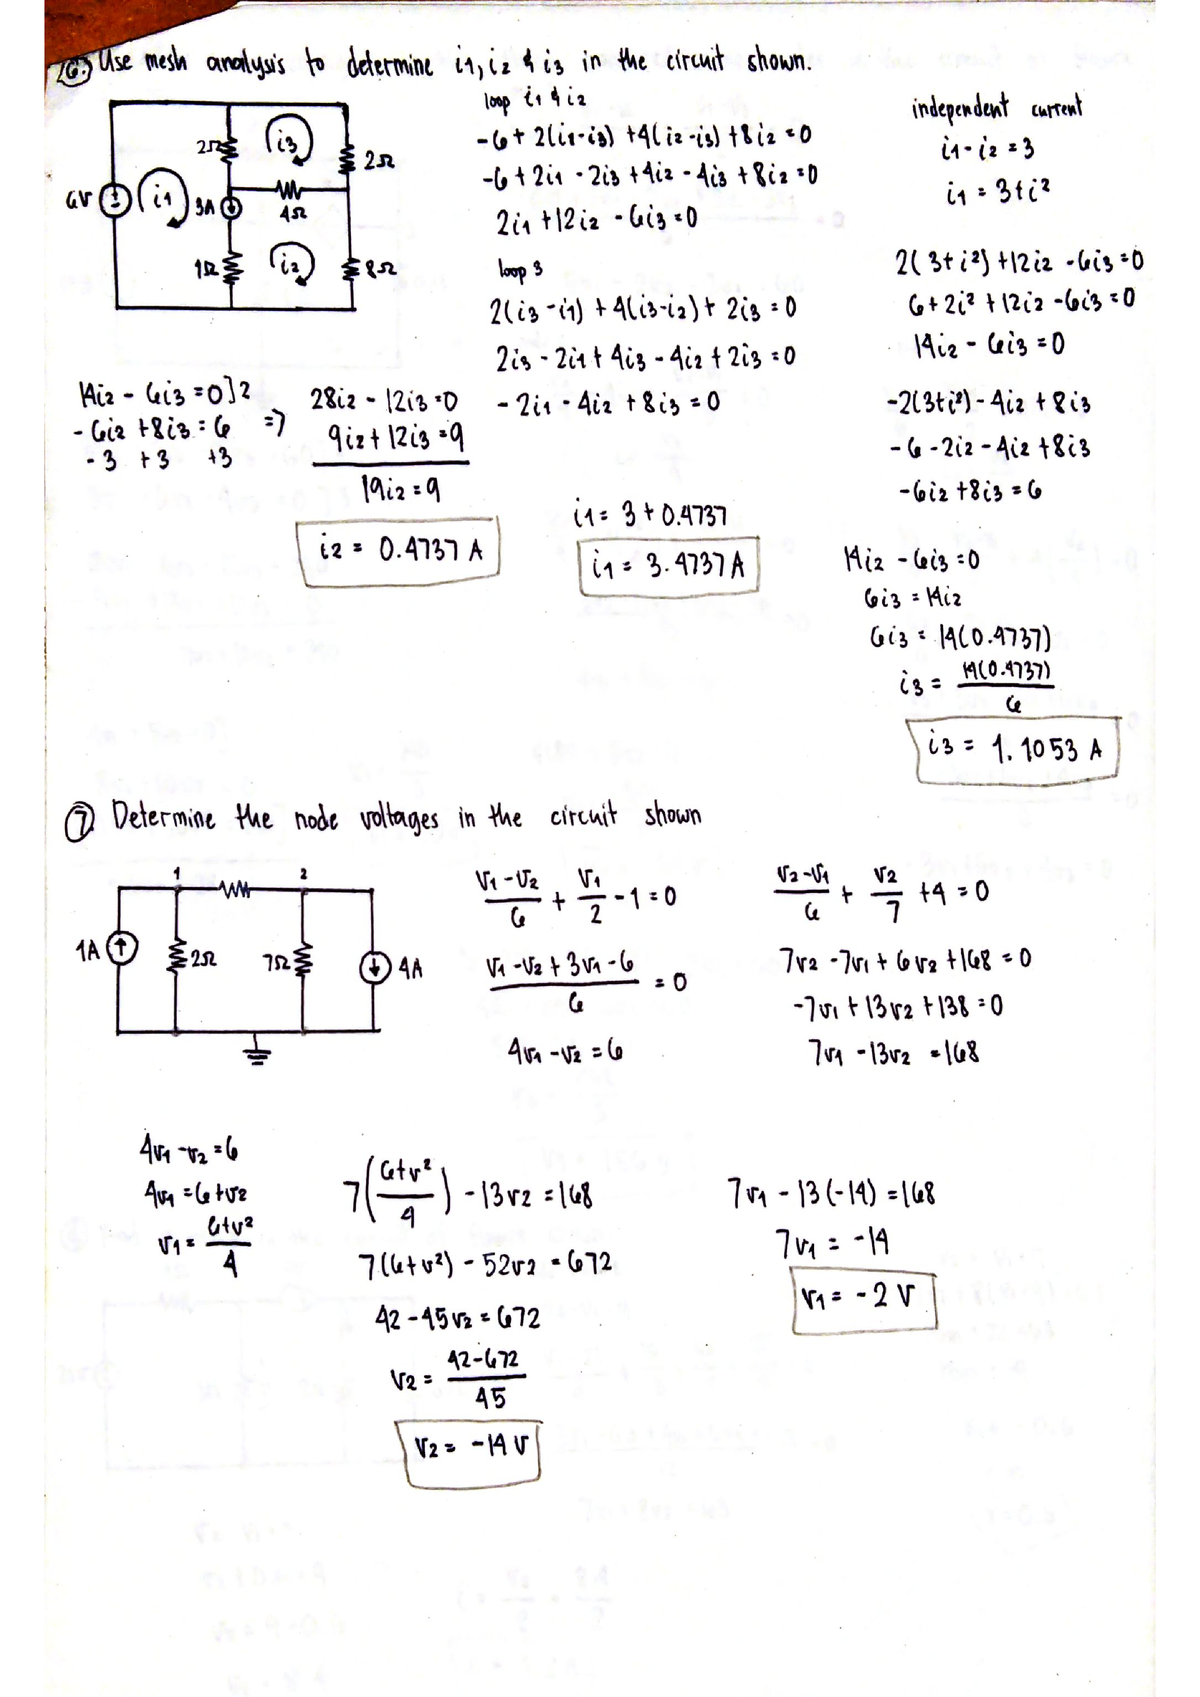 6.) Use mesh analysis to determine i1, i2 & i3 in the circuit shown.
2Ω
i3
2Ω
6V
i1
3A
4Ω
1Ω
i2
8Ω
loop i1 & i2
-6 + 2(i1-i3) + 4(i2-i3) + 8i2 = 0
-6 + 2i1 - 2i3 + 4i2 - 4i3 + 8i2 = 0
2i1 + 12i2 - 6i3 = 0
loop 3
2(i3-i1) + 4(i3-i2) + 2i3 = 0
2i3 - 2i1 + 4i3 - 4i2 + 2i3 = 0
- 2i1 - 4i2 + 8i3 = 0
independent current
i1 - i2 = 3
i1 = 3 + i2
2(3+i2) + 12i2 - 6i3 = 0
6 + 2i2 + 12i2 - 6i3 = 0
14i2 - 6i3 = 0
-2(3+i2) - 4i2 + 8i3
-6 - 2i2 - 4i2 + 8i3
-6i2 + 8i3 = 6
14i2 - 6i3 = 0]2
- 6i2 + 8i3 = 6 =>
-3 +3 +3
28i2 - 12i3 = 0
9i2 + 12i3 = 9
19i2 = 9
i2 = 0.4737 A
i1 = 3 + 0.4737
i1 = 3.4737 A
14i2 - 6i3 = 0
6i3 = 14i2
6i3 = 14(0.4737)
i3 = 14(0.4737)
6
i3 = 1.1053 A
7. Determine the node voltages in the circuit shown
1
2
1A
2Ω
7Ω
4A
V1-V2/6 + V1/2 - 1 = 0
V1 - V2 + 3V1 - 6/6 = 0
4V1 - V2 = 6
V2-V1/6 + V2/7 + 4 = 0
7V2 - 7V1 + 6V2 + 168 = 0
-7V1 + 13V2 + 138 = 0
7V1 - 13V2 = 168
4V1 - V2 = 6
4V1 = 6 + V2
V1 = 6+V2/4
7(6+V2/4) - 13V2 = 168
7(6+V2) - 52V2 = 672
42 - 45V2 = 672
V2 = 42-672/45
V2 = -14 V
7V1 - 13(-14) = 168
7V1 = -14
V1 = -2 V